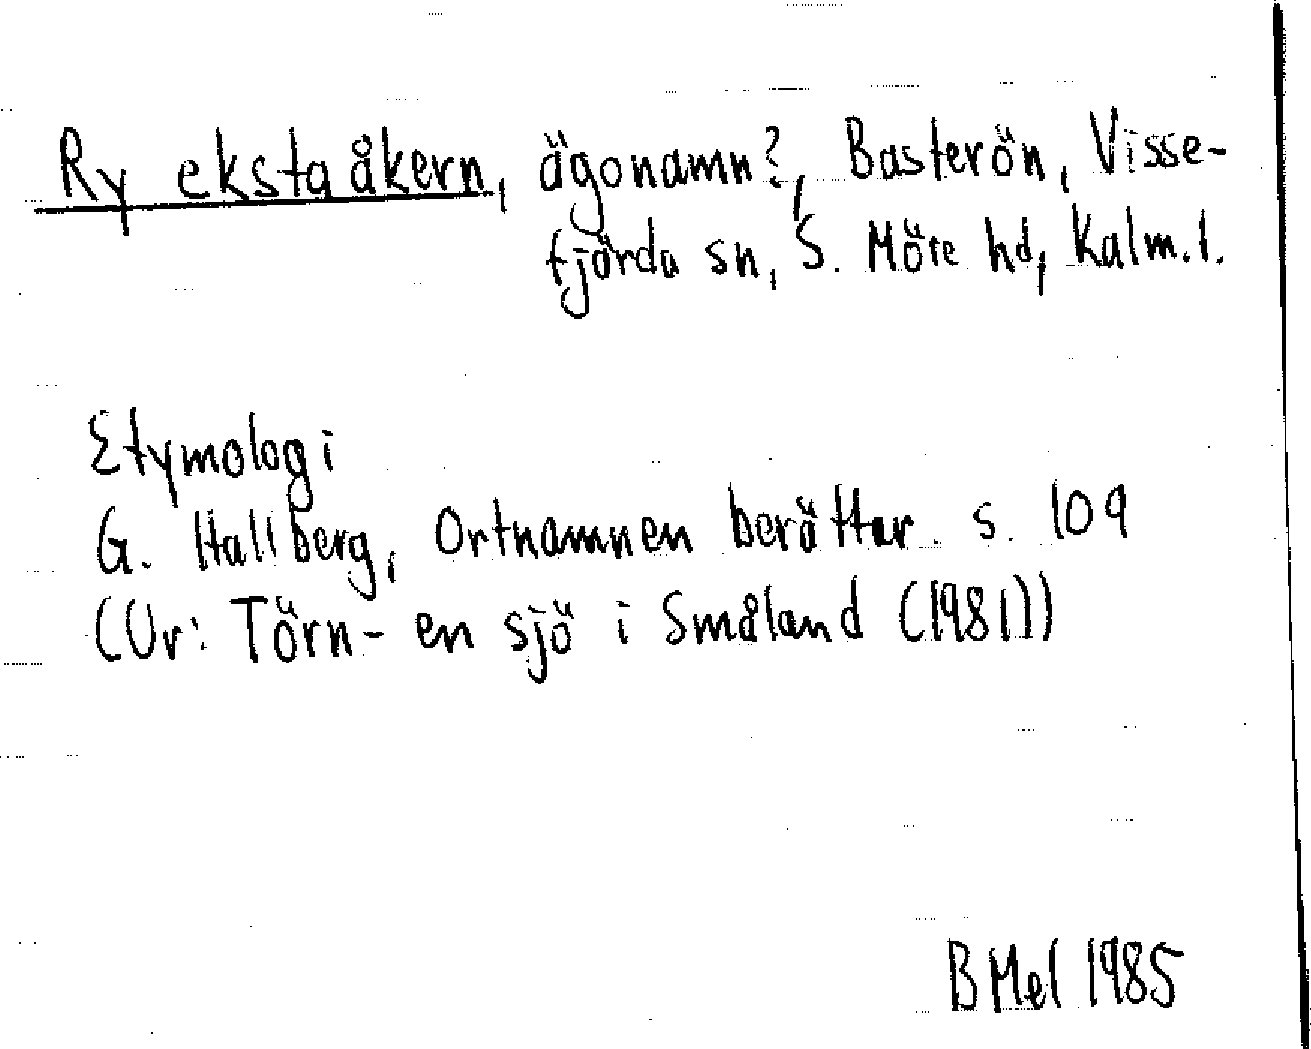 Ry ekstaåkern, ägonamn?, Basterön, Visse-
fjärda sn, S. Möre hd, Kalm.l.
Etymologi
G. Hallberg, Ortnamnen berättar. s. 109
(Ur: Törn- en sjö i Småland (1981))
BMel 1985